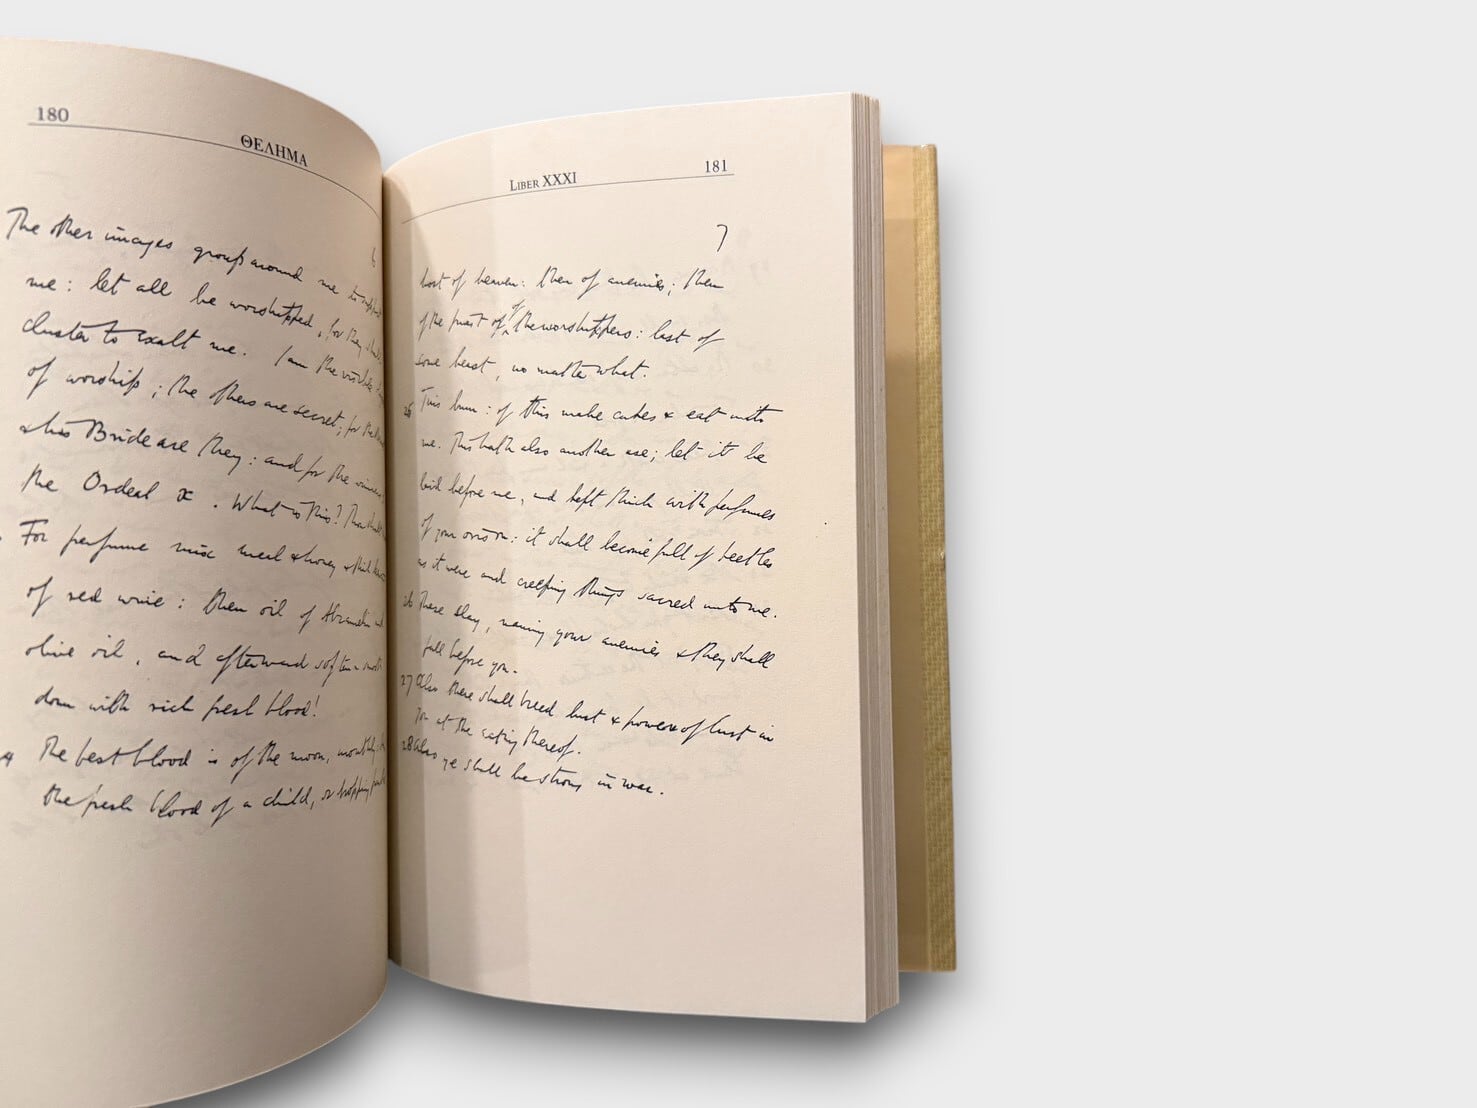 180
ΘΕΛΗΜΑ
6
The other images group around me to support
me: let all be worshipped, for they shall
cluster to exalt me. I am the visible
of worship; the others are secret; for the
& his Bride are they: and for the winners
the Ordeal x. What is this? Thou shalt
For perfume mix meal & honey & thick
of red wine: then oil of Abramelin and
olive oil, and afterward soften & smooth
down with rich fresh blood!
The best blood is of the moon, monthly:
the fresh blood of a child, or dropping
Liber XXXI
181
7
host of heaven: then of enemies; then
of the priest or of the worshippers: last of
some beast, no matter what.
25 This burn: of this make cakes & eat unto
me. This hath also another use; let it be
laid before me, and kept thick with perfumes
of your orison: it shall become full of beetles
as it were and creeping things sacred unto me.
26 These slay, naming your enemies & they shall
fall before you.
27 Also these shall breed lust & power of lust in
you at the eating thereof.
28 Also ye shall be strong in war.